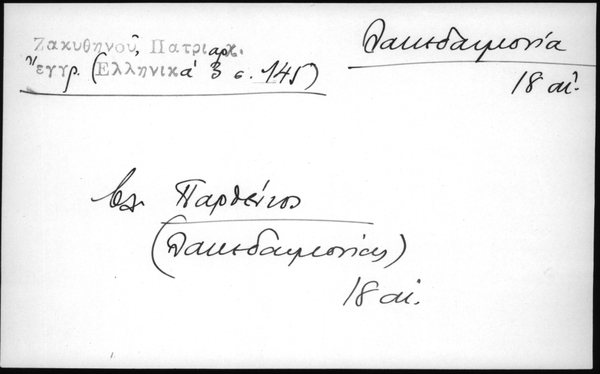 Ζακυθηνοῦ, Πατριαρχ.
ἔγγρ. (Ἑλληνικά 3 σ. 145)
Λακεδαιμονία
18 αἰ.
βλ. Παρθένιος
(Λακεδαιμονίας)
18 αἰ.